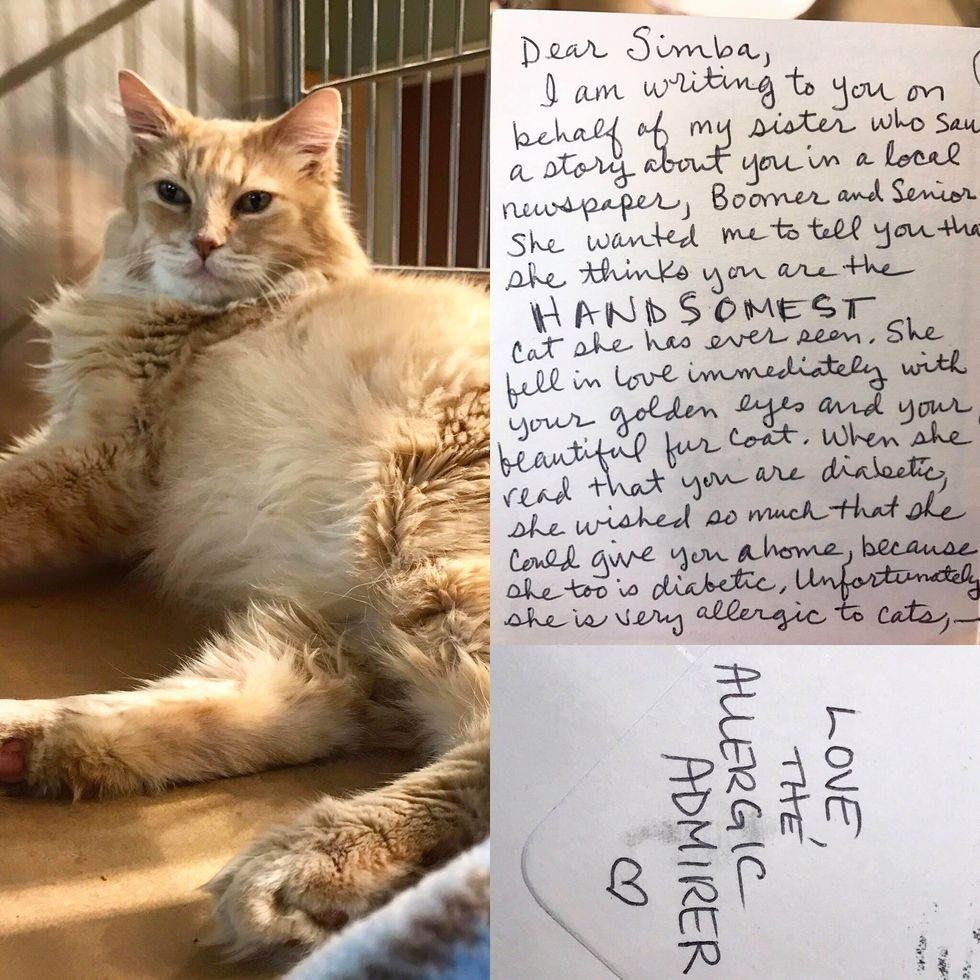 Dear Simba,
I am writing to you on
behalf of my sister who saw
a story about you in a local
newspaper, Boomer and Senior
She wanted me to tell you tha
she thinks you are the
HANDSOMEST
cat she has ever seen. She
fell in love immediately with
your golden eyes and your
beautiful fur coat. When she
read that you are diabetic,
she wished so much that she
could give you a home, because
she too is diabetic, Unfortunately
she is very allergic to cats, —
LOVE,
THE
ALLERGIC
ADMIRER
♡